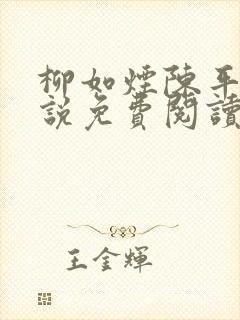 柳如煙陳平
說免費閱讀
王金輝